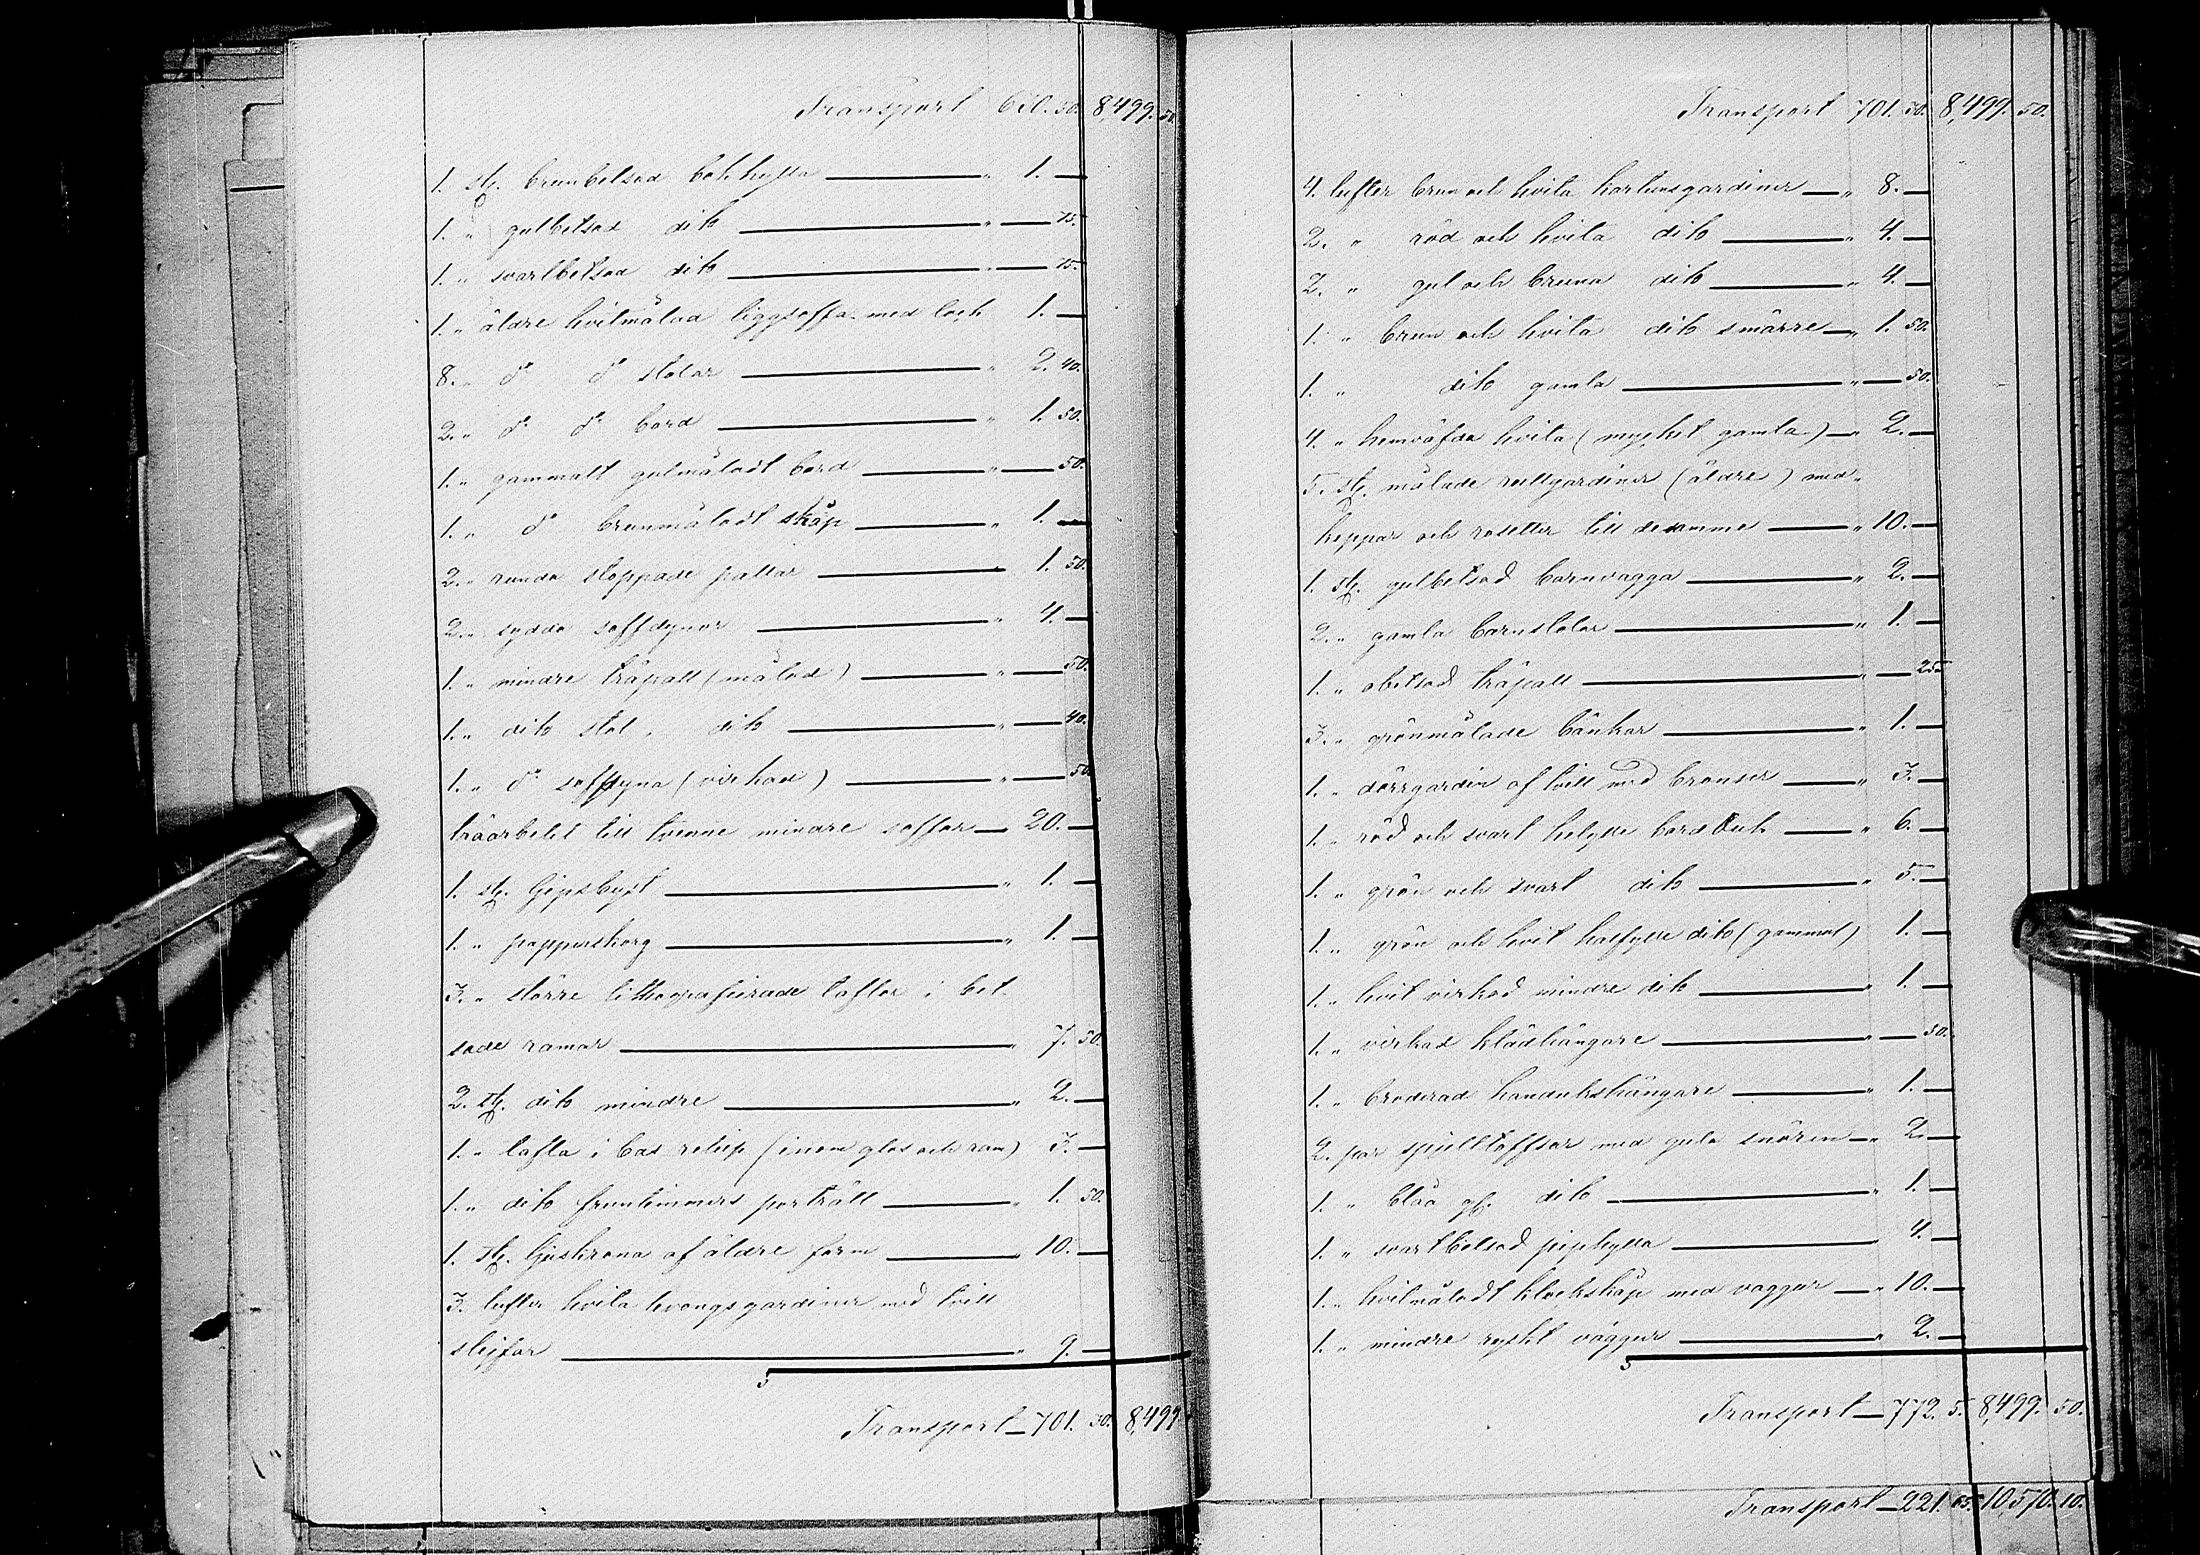 Transport 610. 50. 8,499. 50.
1. st. brunbetsad bokhylla " 1. —
1. " gulbetsad dito " — 75.
1. " svartbetsad dito " — 75.
1. " äldre hvitmålad liggsoffa med lock 1. —
8. " d:o d:o stolar " 2. 40.
2. " d:o d:o bord " 1. 50.
1. " gammalt gulmåladt bord " — 50.
1. " d:o brunmåladt skåp " 1. —
2. " runda stoppade pallar " 1. 50.
2. " sydda soffdynor " 4. —
1. " mindre träpall (målad) " — 50.
1. " dito stol, dito " — 40.
1. " d:o soffdyna (virkad) " — 50.
träarbetet till tvenne mindre soffor 20. —
1. st. Gipsbyst " 1. —
1. " papperskorg " 1. —
3. " större lithografierade taflor i bet-
sade ramar " 7. 50.
2. st. dito mindre " 2. —
1. " tafla i bas relief (inom glas och ram) 3. —
1. " dito fruntimmers porträtt " 1. 50.
1. st. ljuskrona af äldre form " 10. —
3. lufter hvita gardiner med tvill
slejfar " 9. —
Transport 701. 50. 8,499.
Transport 701. 50. 8,499. 50.
4. lufter brun och hvita kattunsgardiner " 8. —
2. " röd och hvita dito " 4. —
2. " gul och bruna dito " 4. —
1. " brun och hvita dito smärre " 1. 50.
1. " dito gamla " — 50.
4. " hemväfda hvita (mycket gamla) " 2. —
5. st. målade rullgardiner (äldre) med
käppar och rosetter till desamme " 10. —
1. st. gulbetsad barnvagga " 2. —
2. " gamla barnstolar " 1. —
1. " obetsad träpall " — 25
3. " grönmålade bänkar " 1. —
1. " dörrgardin af tvill med bronser " 3. —
1. " röd och svart helylle bordduk " 6. —
1. " grön och svart dito " 5. —
1. " grön och hvit halfylle dito (gammal) 1. —
1. " hvit virkad mindre dito " 1. —
1. " virkad klädhängare " — 50.
1. " broderad handukshängare " 1. —
2. par spjelltoffsar med gula snören " 2. —
1. " blåa dito " 1. —
1. " svartbetsad piphylla 4. —
1. " hvitmåladt klockskåp med väggur " 10. —
1. " mindre ryskt väggur " 2. —
Transport 772. 5. 8,499. 50.
Transport 221. 65. 10,570. 10.